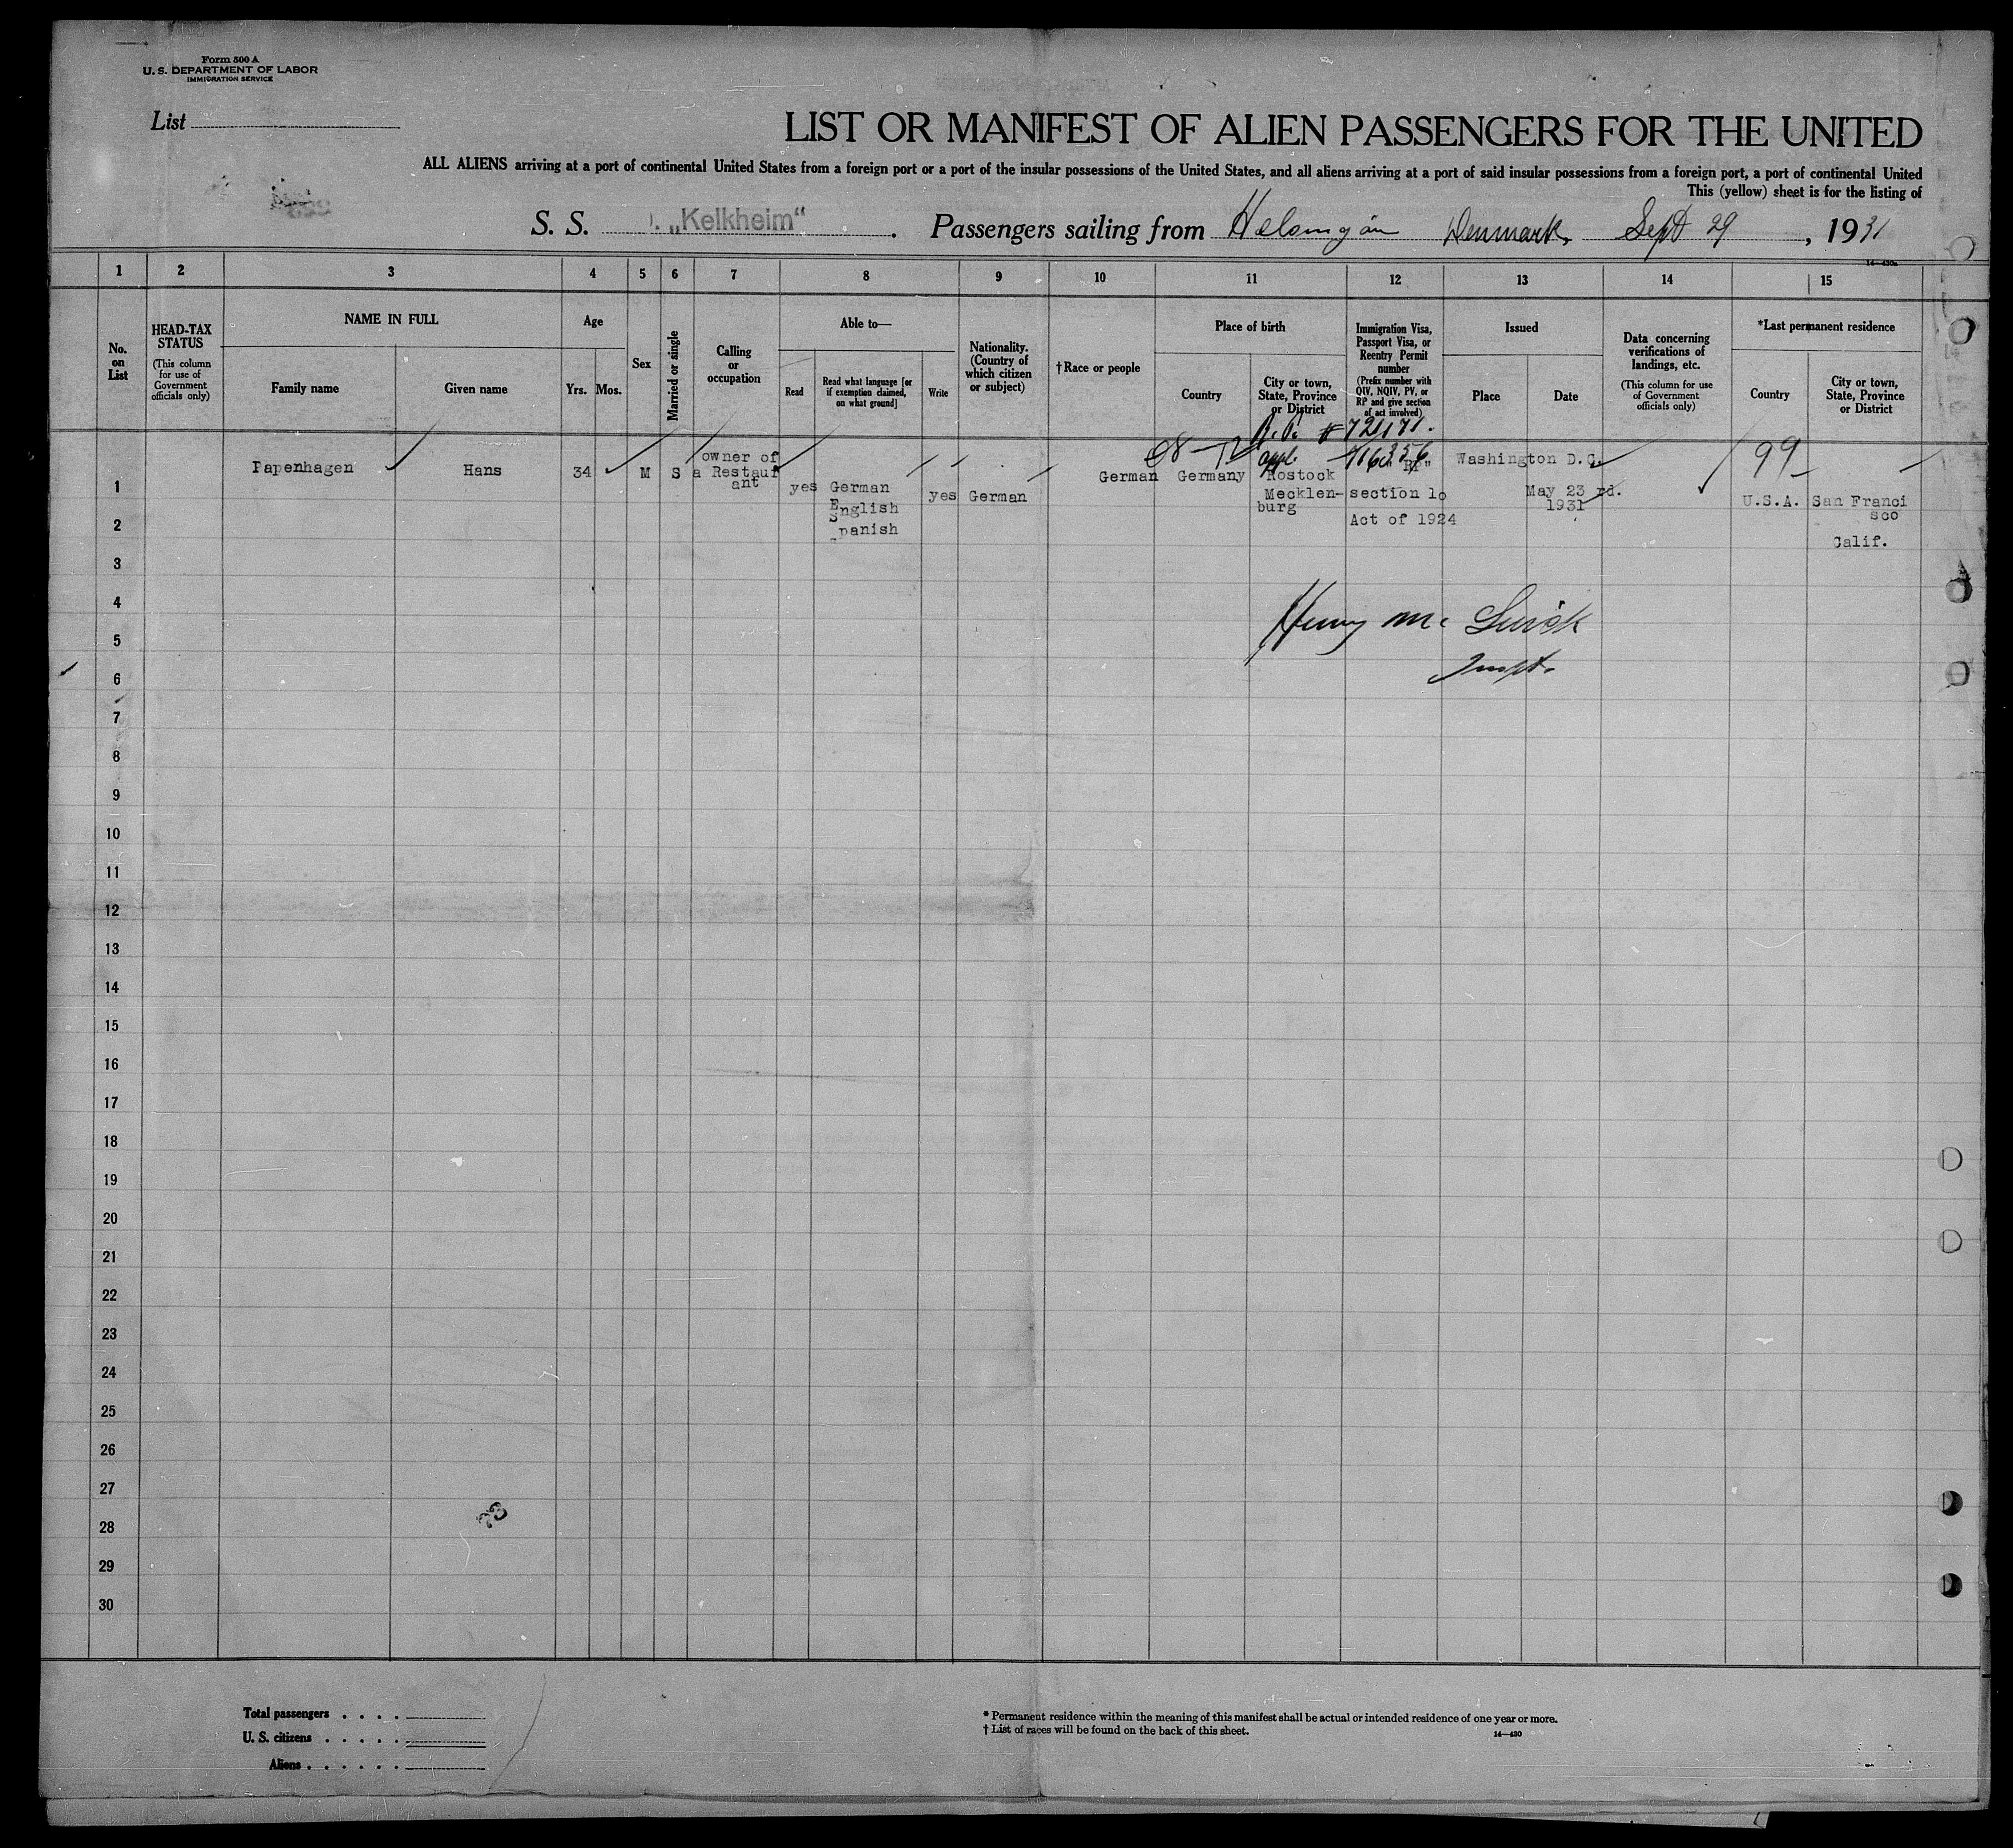 Form 500 A
U. S. DEPARTMENT OF LABOR
IMMIGRATION SERVICE
List
LIST OR MANIFEST OF ALIEN PASSENGERS FOR THE UNITED
ALL ALIENS arriving at a port of continental United States from a foreign port or a port of the insular possessions of the United States, and all aliens arriving at a port of said insular possessions from a foreign port, a port of continental United
This (yellow) sheet is for the listing of
S. S. „Kelkheim“. Passengers sailing from Denmark, Sept 29, 1931
14—430a
1 2 3 4 5 6 7 8 9 10 11 12 13 14 15
No. on List
HEAD-TAX STATUS
(This column for use of Government officials only)
NAME IN FULL
Family name
Given name
Age
Yrs. Mos.
Sex
Married or single
Calling or occupation
Able to—
Read
Read what language [or if exemption claimed, on what ground]
Write
Nationality. (Country of which citizen or subject)
†Race or people
Place of birth
Country
City or town, State, Province or District
Immigration Visa, Passport Visa, or Reentry Permit number
(Prefix number with QIV, NQIV, PV, or RP and give section of act involved)
Issued
Place
Date
Data concerning verifications of landings, etc.
(This column for use of Government officials only)
*Last permanent residence
Country
City or town, State, Province or District
R.P. #721171.
appl. 716356
99
Papenhagen
Hans
34
M
S
owner of
a Restaur
ant
yes
German
English
Spanish
yes
German
German
Germany
Rostock
Mecklen-
burg
"RP"
section 10
Act of 1924
Washington D.C.
May 23 rd.
1931
U.S.A.
San Franci
sco
Calif.
Henry Mc
Inspt.
1
2
3
4
5
6
7
8
9
10
11
12
13
14
15
16
17
18
19
20
21
22
23
24
25
26
27
28
29
30
Total passengers . . . .
U. S. citizens . . . . .
Aliens . . . . . .
* Permanent residence within the meaning of this manifest shall be actual or intended residence of one year or more.
† List of races will be found on the back of this sheet.
14—430